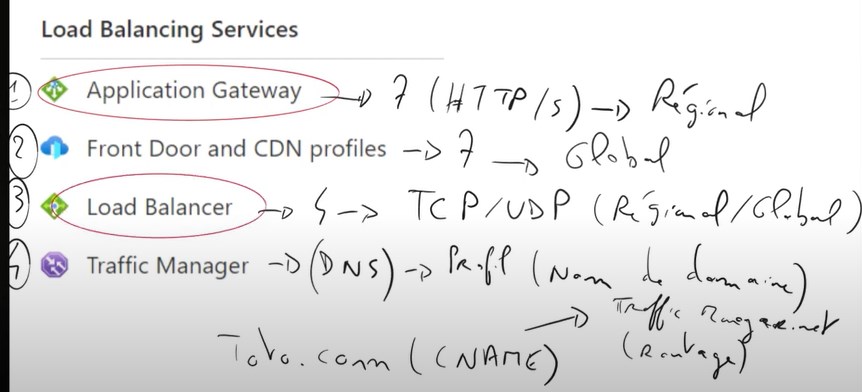 Load Balancing Services
1 Application Gateway → 7 (HTTP/s) → Régional
2 Front Door and CDN profiles → 7 → Global
3 Load Balancer → 4 → TCP/UDP (Régional/Global)
4 Traffic Manager → (DNS) → Profil (Nom de domaine)
Toto.com (CNAME) → Traffic Manager.net
(Routage)